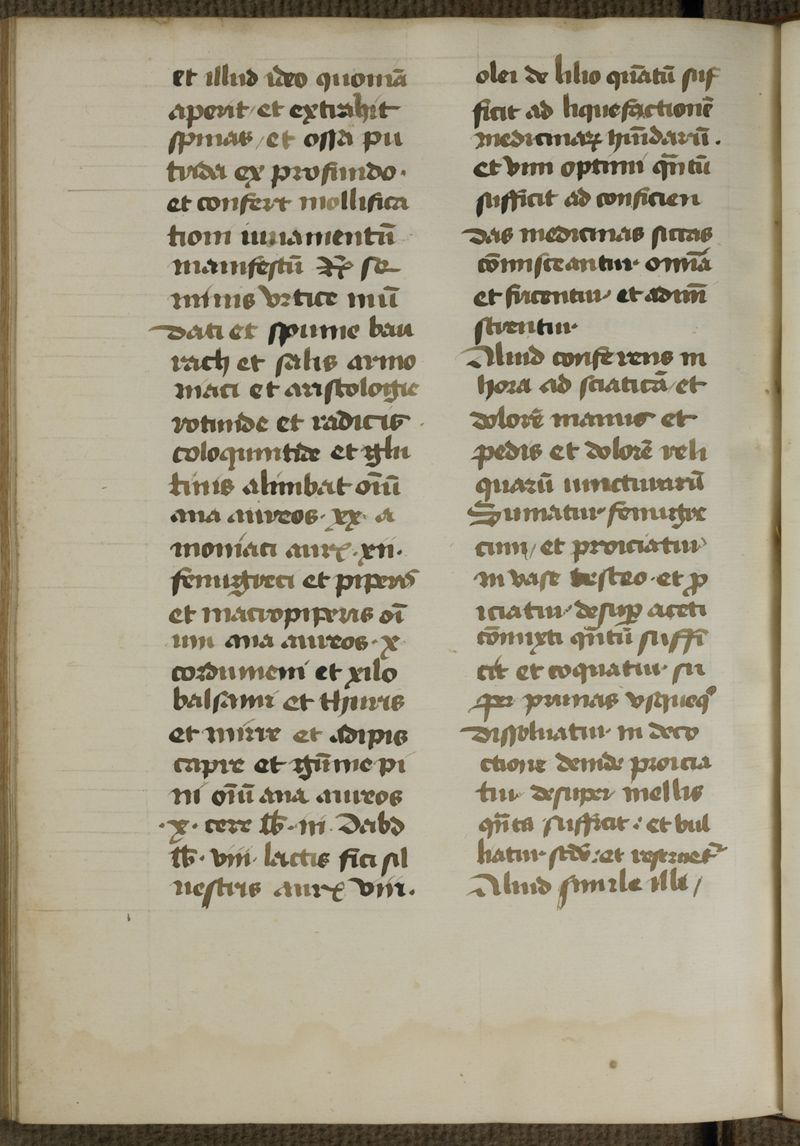 et illud ideo quoniā
aperit et extrahit
spinas / et ossa pu
trida ex profundo.
et confert mollifica
tioni iuuamentū
manifestū ℞ se
minis vrtice mū
dati et spume bau
rach et salis armo
niaci et aristologie
rotunde et radicis
coloquintide et glu
tinis alimbat oīū
ana aureos. xx. a
moniaci aur. xii.
fenugreci et piperis
et macropiperis oī
um ana aureos. x
cordumeni et xilo
balsami et thuris
et mirre et adipis
capre et gūme pi
ni oīū ana aureos
.x. cere lb. iii. Dabd
lb. viii. lactis fici sil
uestris aur. viii.
olei de lilio quātū suf
ficit ad liquefactionē
medicinaꝝ hūidarū.
et vini optimi qn̄tū
sufficit ad conficien
das medicinas siccas
cōmisceantur. omīa
et fricentur et admī
strentur.
Aliud conferens in
hora ad sciaticā et
dolorē manus et
pedis et dolorē reli
quarū iuncturarū
Sumatur fenugre
cum / et proiciatur
in vase testeo. et ꝓ
iciatur. desuꝑ aceti
cōmixti qn̄tū suffi
cit et coquatur. su
per prunas vsqueqꝫ
dissoluatur in deco
ctione deinde proicia
tur desuper mellis
qn̄tū sufficit: et bul
liatur scd̄o: et
Aliud simile illi /